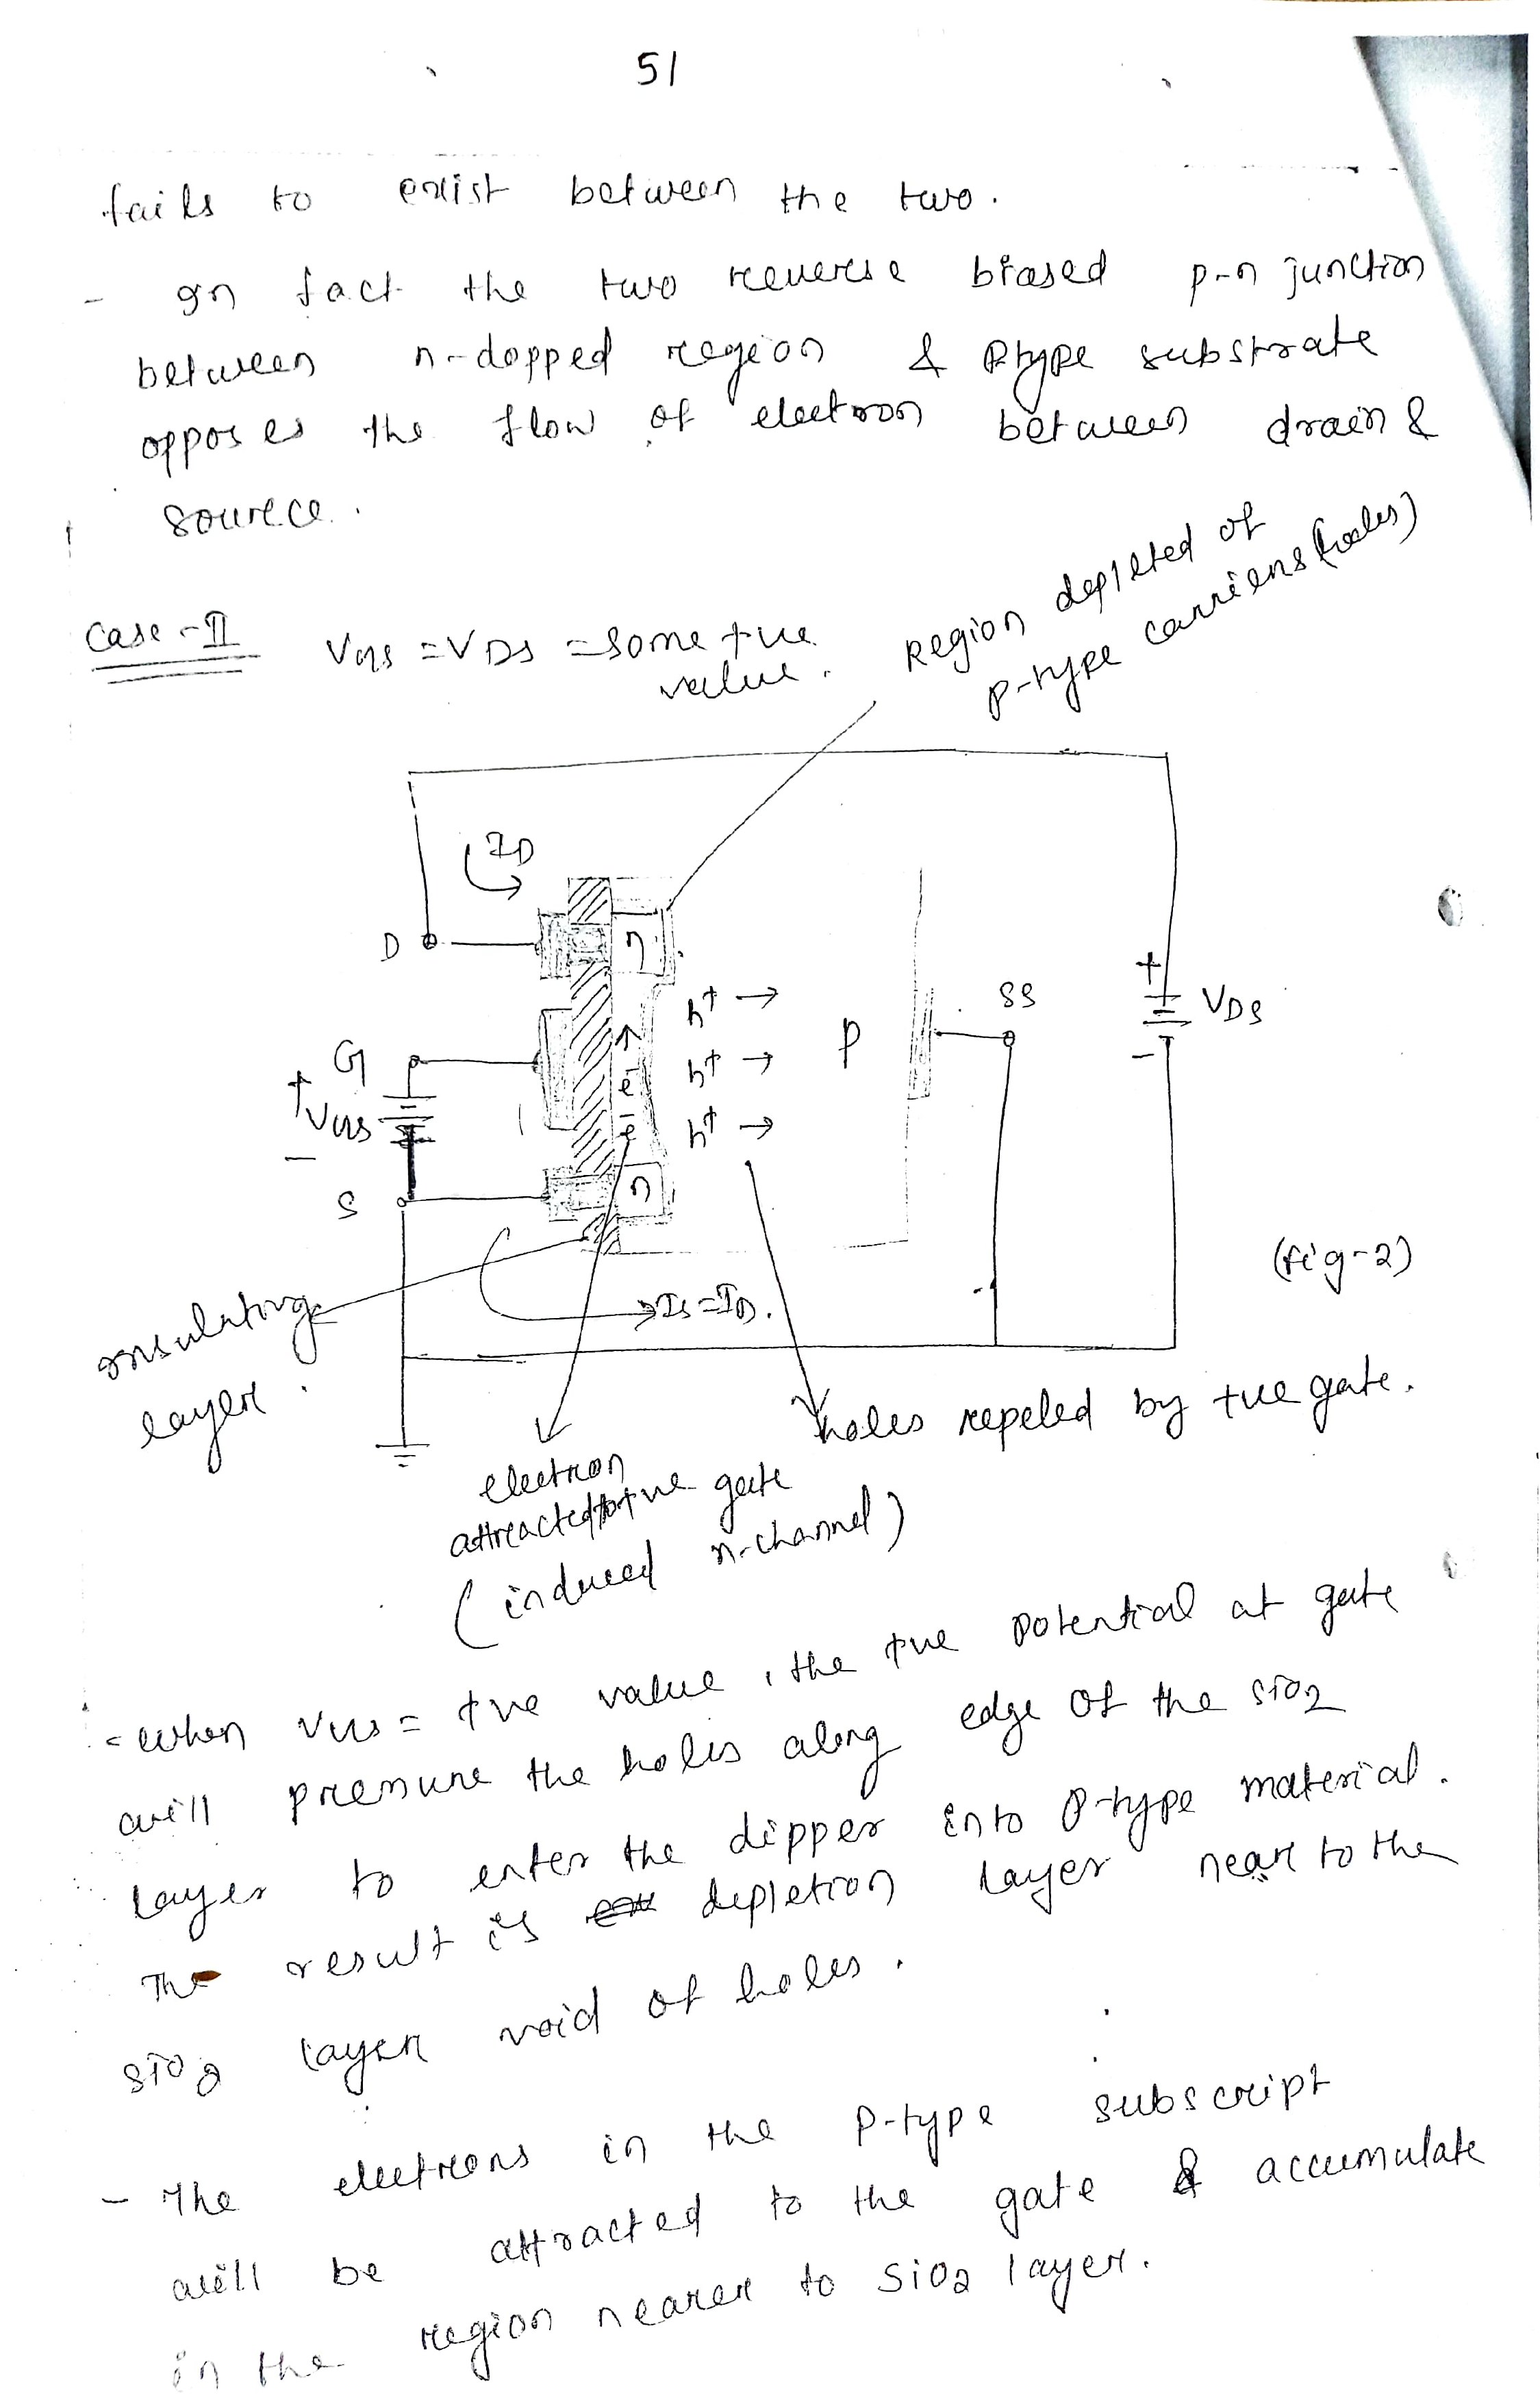 51
fails to exist between the two.
- In fact the two reverse biased p-n junction
between n-dopped region & Ptype substrate
opposes the flow of electron between drain &
source.
Case-II VGS = VDS = some +ve
value.
Region depleted of
P-type carriers (holes)
ID
D
n
h+ →
SS
+
VDS
G
p
e-
h+ →
-
+
VGS
e-
h+ →
-
S
n
(fig-2)
Insulating
layer.
IS = ID.
holes repeled by +ve gate.
electron
attracted to +ve gate
(induced n-channel)
- when VGS = +ve value, the +ve potential at gate
will pressure the holes along edge of the SiO2
layer to enter the dipper into P-type material.
The result is depletion layer near to the
SiO2 layer void of holes.
- The electrons in the P-type subscript
will be attracted to the gate & accumulate
in the region nearer to SiO2 layer.